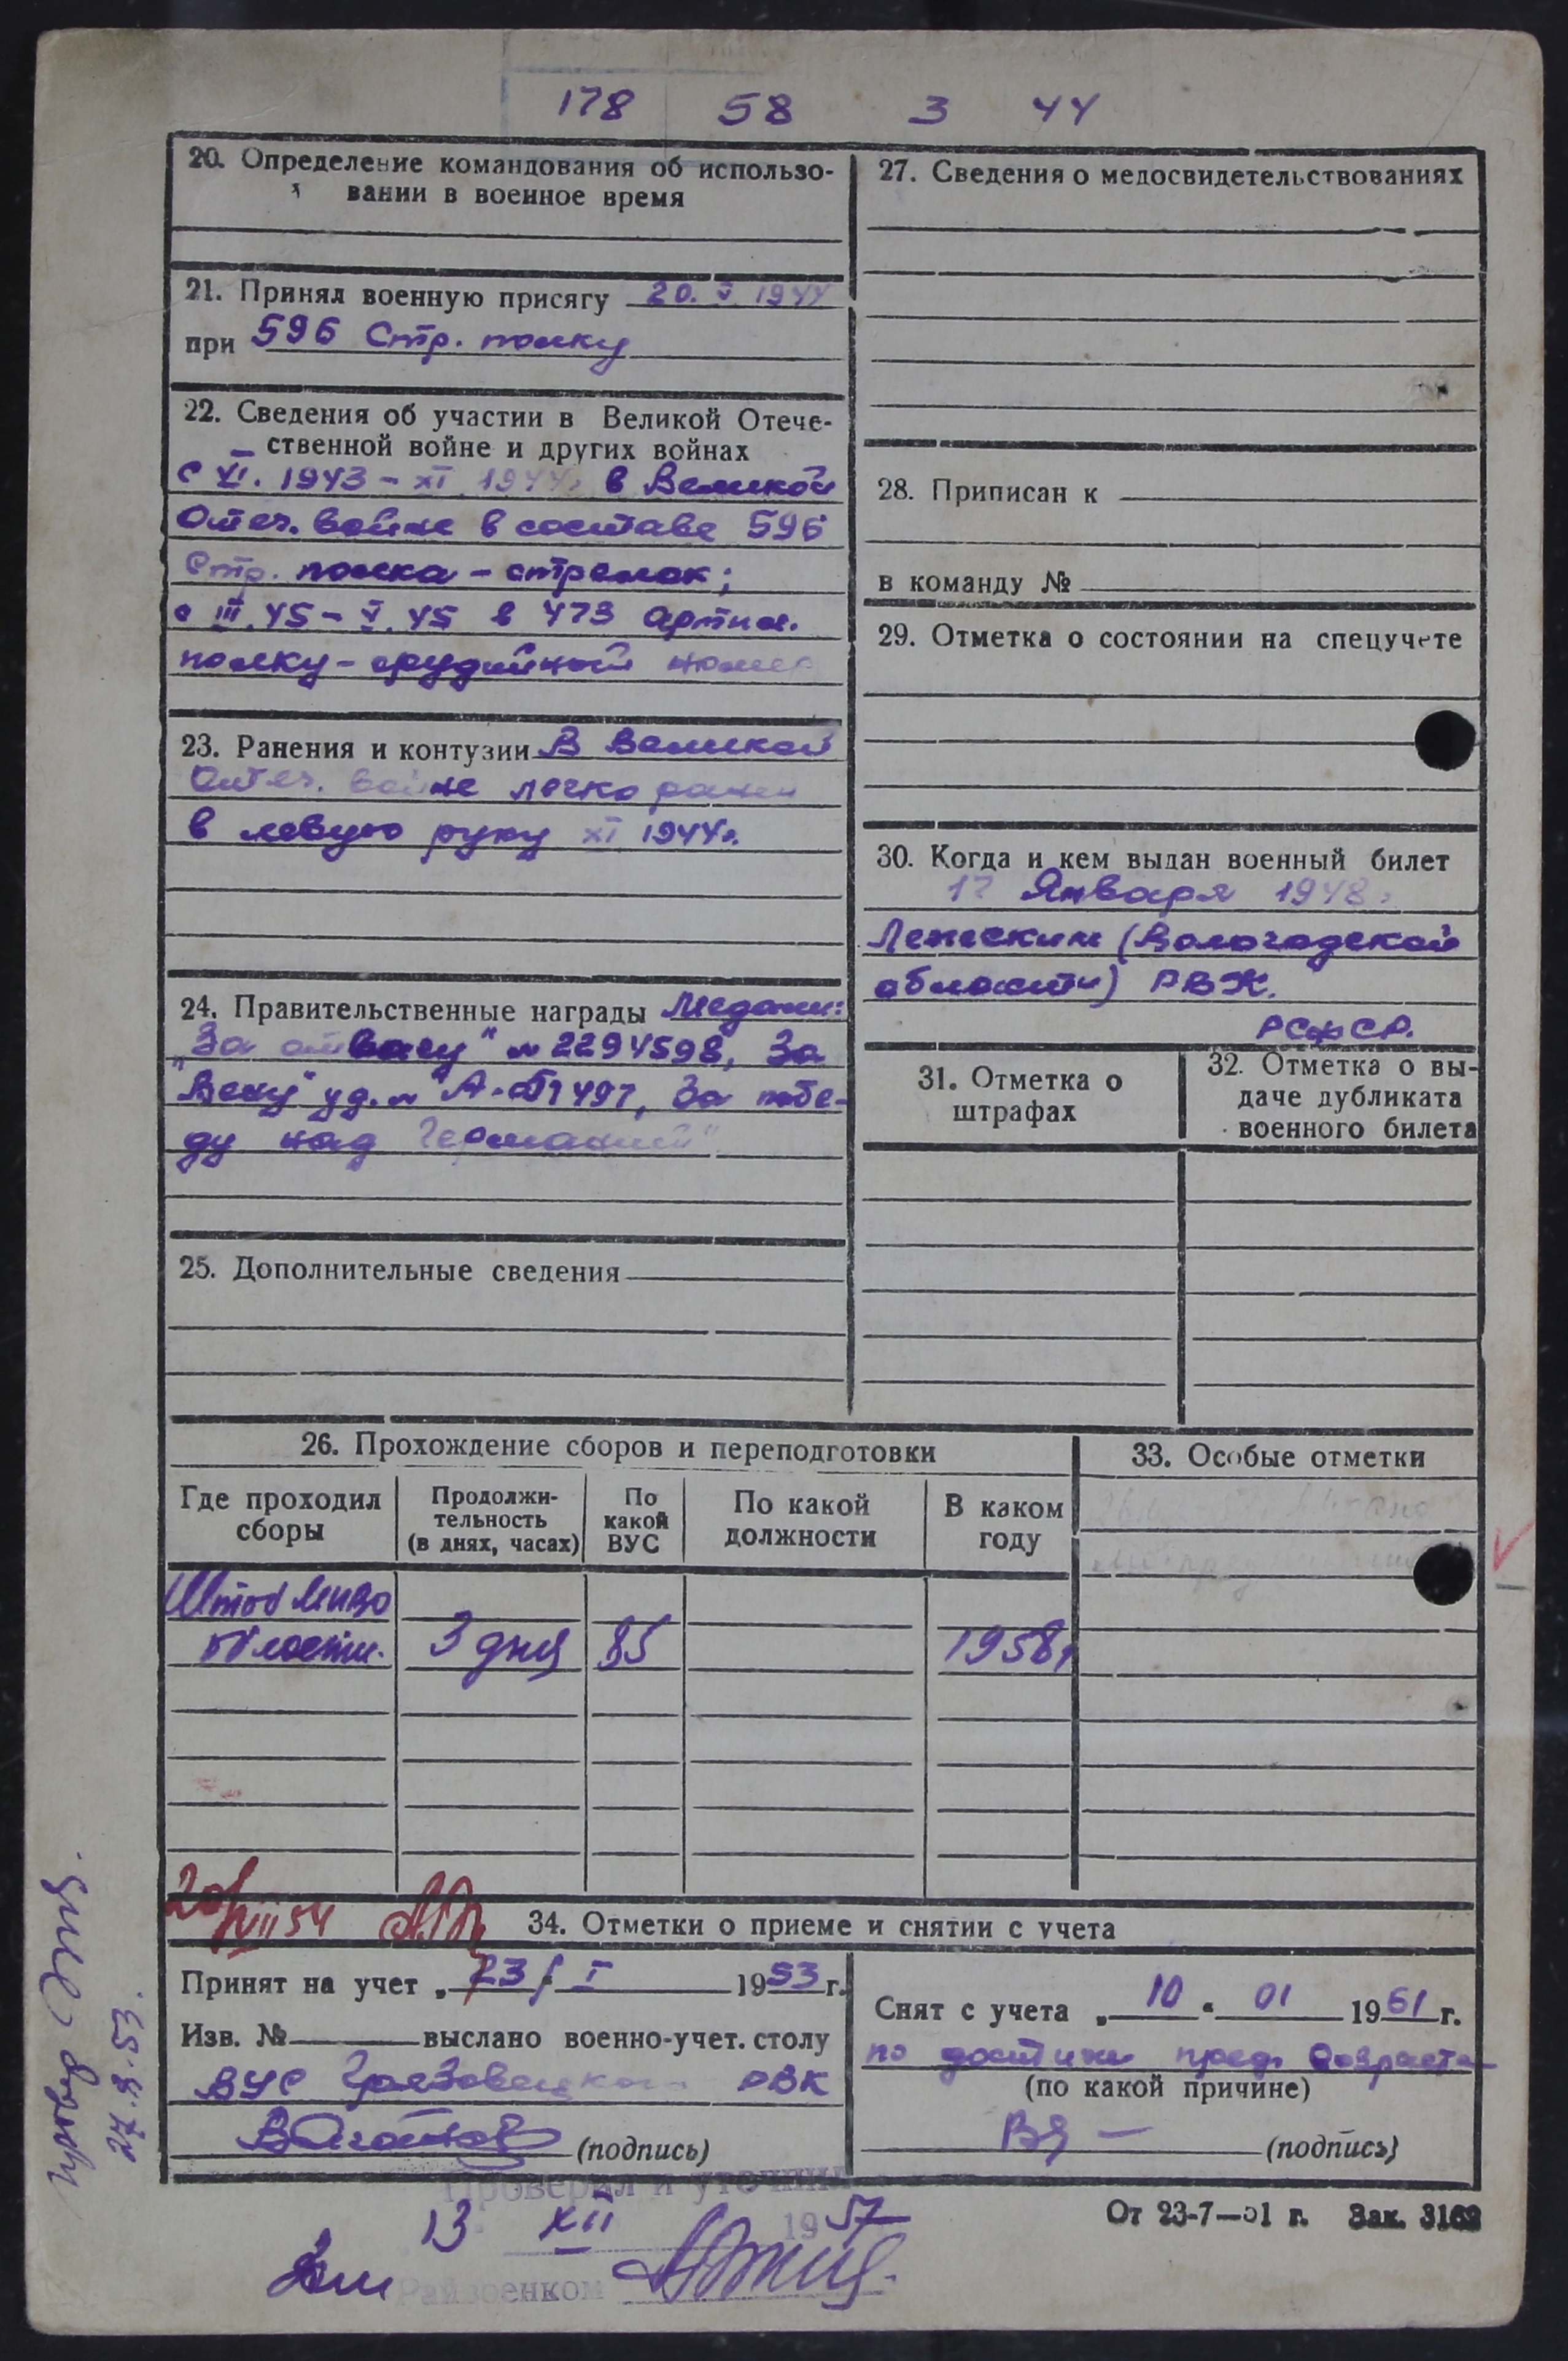 178 58 3 44
20. Определение командования об использо-
вании в военное время
21. Принял военную присягу 20. V. 1944
при 596 Стр. полку
22. Сведения об участии в Великой Отече-
ственной войне и других войнах
с XI. 1943 - XI 1944г в Великой
Отеч. войне в составе 596
Стр. полка - стрелок;
с III.45 - V.45 в 473 Артил.
полку - орудийный номер
23. Ранения и контузии В Великой
Отеч. войне легко ранен
в левую руку XI 1944г.
24. Правительственные награды Медали:
"За отвагу" № 2294598, За
"Вену" уд. № А- 497, За побе-
ду над Германией"
25. Дополнительные сведения
27. Сведения о медосвидетельствованиях
28. Приписан к
в команду №
29. Отметка о состоянии на спецучете
30. Когда и кем выдан военный билет
Января 1948г
Лежским (Вологодской
области) РВК.
РСФСР.
31. Отметка о
штрафах
32. Отметка о вы-
даче дубликата
военного билета
26. Прохождение сборов и переподготовки
Где проходил
сборы
Продолжи-
тельность
(в днях, часах)
По
какой
ВУС
По какой
должности
В каком
году
Штаб
области. 3 дня 85 1958г
33. Особые отметки
VIII 54
34. Отметки о приеме и снятии с учета
Принят на учет „23" I 1953 г.
Изв. № выслано военно-учет. столу
ВУС Грязовецкого РВК
(подпись)
Снят с учета „10" 01 1961 г.
по достиж пред. возраста
(по какой причине)
(подпись)
Проверил и уточнил
13 XII 1957
Райвоенком
От 23-7-51 г. Зак. 3162
27.8.53.